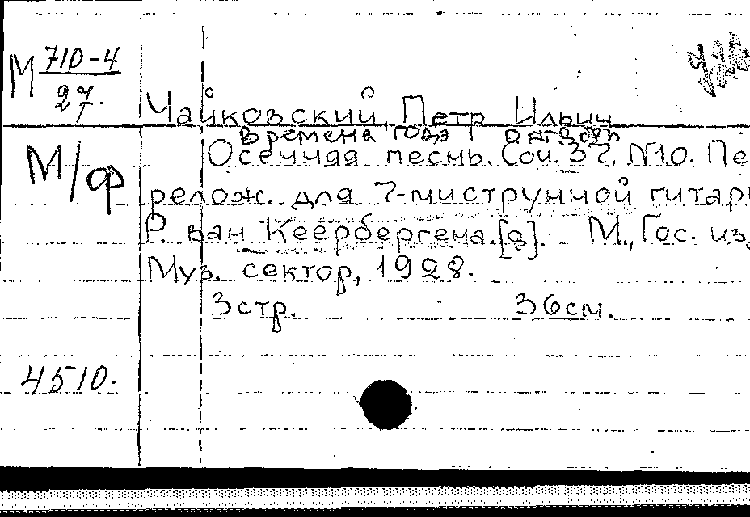 М 710-4
27.
Чайковский, Петр Ильич
Времена года
Осенняя песнь. Соч. 37. N10. Пе
М/ф
релож. для 7-миструнной гитары
Р. ван Кеербергена. [g]. М., Гос. из
Муз. сектор, 1928.
3 стр. 36 см.
4510.